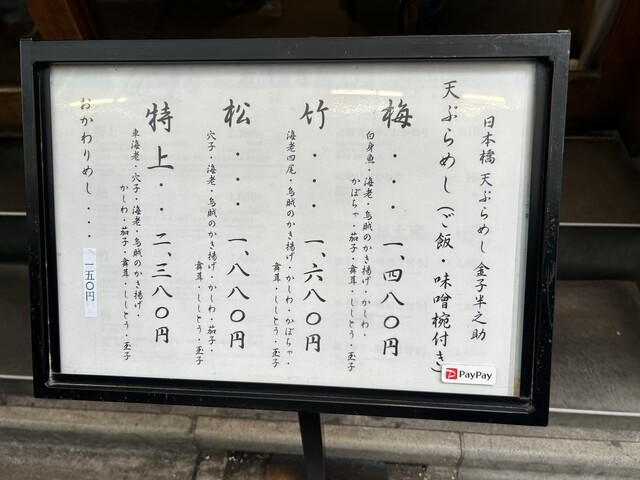 日本橋 天ぷらめし 金子半之助
天ぷらめし（ご飯・味噌椀付き）
梅・・・・一、四八〇円
白身魚・海老・烏賊のかき揚げ・かしわ・
かぼちゃ・茄子・舞茸・ししとう・玉子
竹・・・・一、六八〇円
海老四尾・烏賊のかき揚げ・かしわ・かぼちゃ・
舞茸・ししとう・玉子
松・・・・一、八八〇円
穴子・海老・烏賊のかき揚げ・かしわ・茄子・
舞茸・ししとう・玉子
特上・・二、三八〇円
車海老・穴子・海老・烏賊のかき揚げ・
かしわ・茄子・舞茸・ししとう・玉子
おかわりめし・・・・一五〇円
PayPay